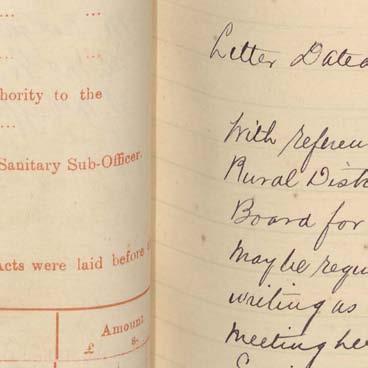 ... ...
... ...
hority to the
...
Sanitary Sub-Officer.
Acts were laid before
Amount
£ s.
Letter Dated
With referen
Rural Dist
Board for
may be requ
writing as
meeting he